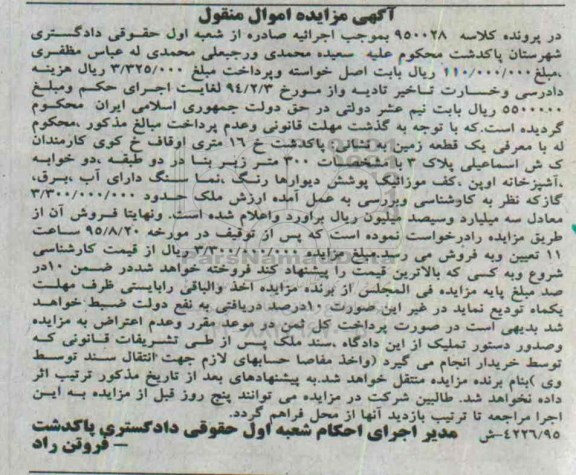 آگهی مزایده اموال منقول
در پرونده کلاسه ۹۵۰۰۲۸ بموجب اجرائیه صادره از شعبه اول حقوقی دادگستری
شهرستان پاکدشت محکوم علیه سعیده محمدی ورجبعلی محمدی له عباس مظفری
،مبلغ ۱۱۰/۰۰۰/۰۰۰ ریال بابت اصل خواسته وپرداخت مبلغ ۳/۳۲۵/۰۰۰ ریال هزینه
دادرسی وخسارت تاخیر تادیه واز مورخ ۹۴/۲/۳ لغایت اجرای حکم ومبلغ
۵۵۰۰۰۰۰ ریال بابت نیم عشر دولتی در حق دولت جمهوری اسلامی ایران محکوم
گردیده است.که با توجه به گذشت مهلت قانونی وعدم پرداخت مبالغ مذکور ،محکوم
له با معرفی یک قطعه زمین به نشانی پاکدشت خ ۱۶ متری اوقاف خ کوی کارمندان
ک ش اسماعیلی پلاک ۳ با مشخصات ۳۰۰ متر زیر بنا در دو طبقه ،دو خوابه
،آشپزخانه اوپن ،کف موزائیک پوشش دیوارها رنگ ،نما سنگ دارای آب ،برق،
گازکه نظر به کارشناسی وبررسی به عمل آمده ارزش ملک حدود ۳/۳۰۰/۰۰۰/۰۰۰
معادل سه میلیارد وسیصد میلیون ریال براورد واعلام شده است. ونهایتا فروش آن از
طریق مزایده رادرخواست نموده است که پس از توقیف در مورخه ۹۵/۸/۲۰ ساعت
۱۱ تعیین وبه فروش می رسد مبلغ مزایده ۳/۳۰۰/۰۰۰/۰۰۰ ریال از قیمت کارشناسی
شروع وبه کسی که بالاترین قیمت را پیشنهاد کند فروخته خواهد شددر ضمن ۱۰در
صد مبلغ پایه مزایده فی المجلس از برنده مزایده اخذ والباقی رابایستی ظرف مهلت
یکماه تودیع نماید در غیر این صورت ۱۰درصد دریافتی به نفع دولت ضبط خواهد
شد بدیهی است در صورت پرداخت کل ثمن در موعد مقرر وعدم اعتراض به مزایده
وصدور دستور تملیک از این دادگاه ،سند ملک پس از طی تشریفات قانونی که
توسط خریدار انجام می گیرد (واخذ مفاصا حسابهای لازم جهت انتقال سند توسط
وی )بنام برنده مزایده منتقل خواهد شد.به پیشنهادهای بعد از تاریخ مذکور ترتیب اثر
داده نخواهد شد. طالبین شرکت در مزایده می توانند پنج روز قبل از مزایده به این
اجرا مراجعه تا ترتیب بازدید آنها از محل فراهم گردد.
۴۲۲۶/۹۵-ش مدیر اجرای احکام شعبه اول حقوقی دادگستری پاکدشت
– فروتن راد